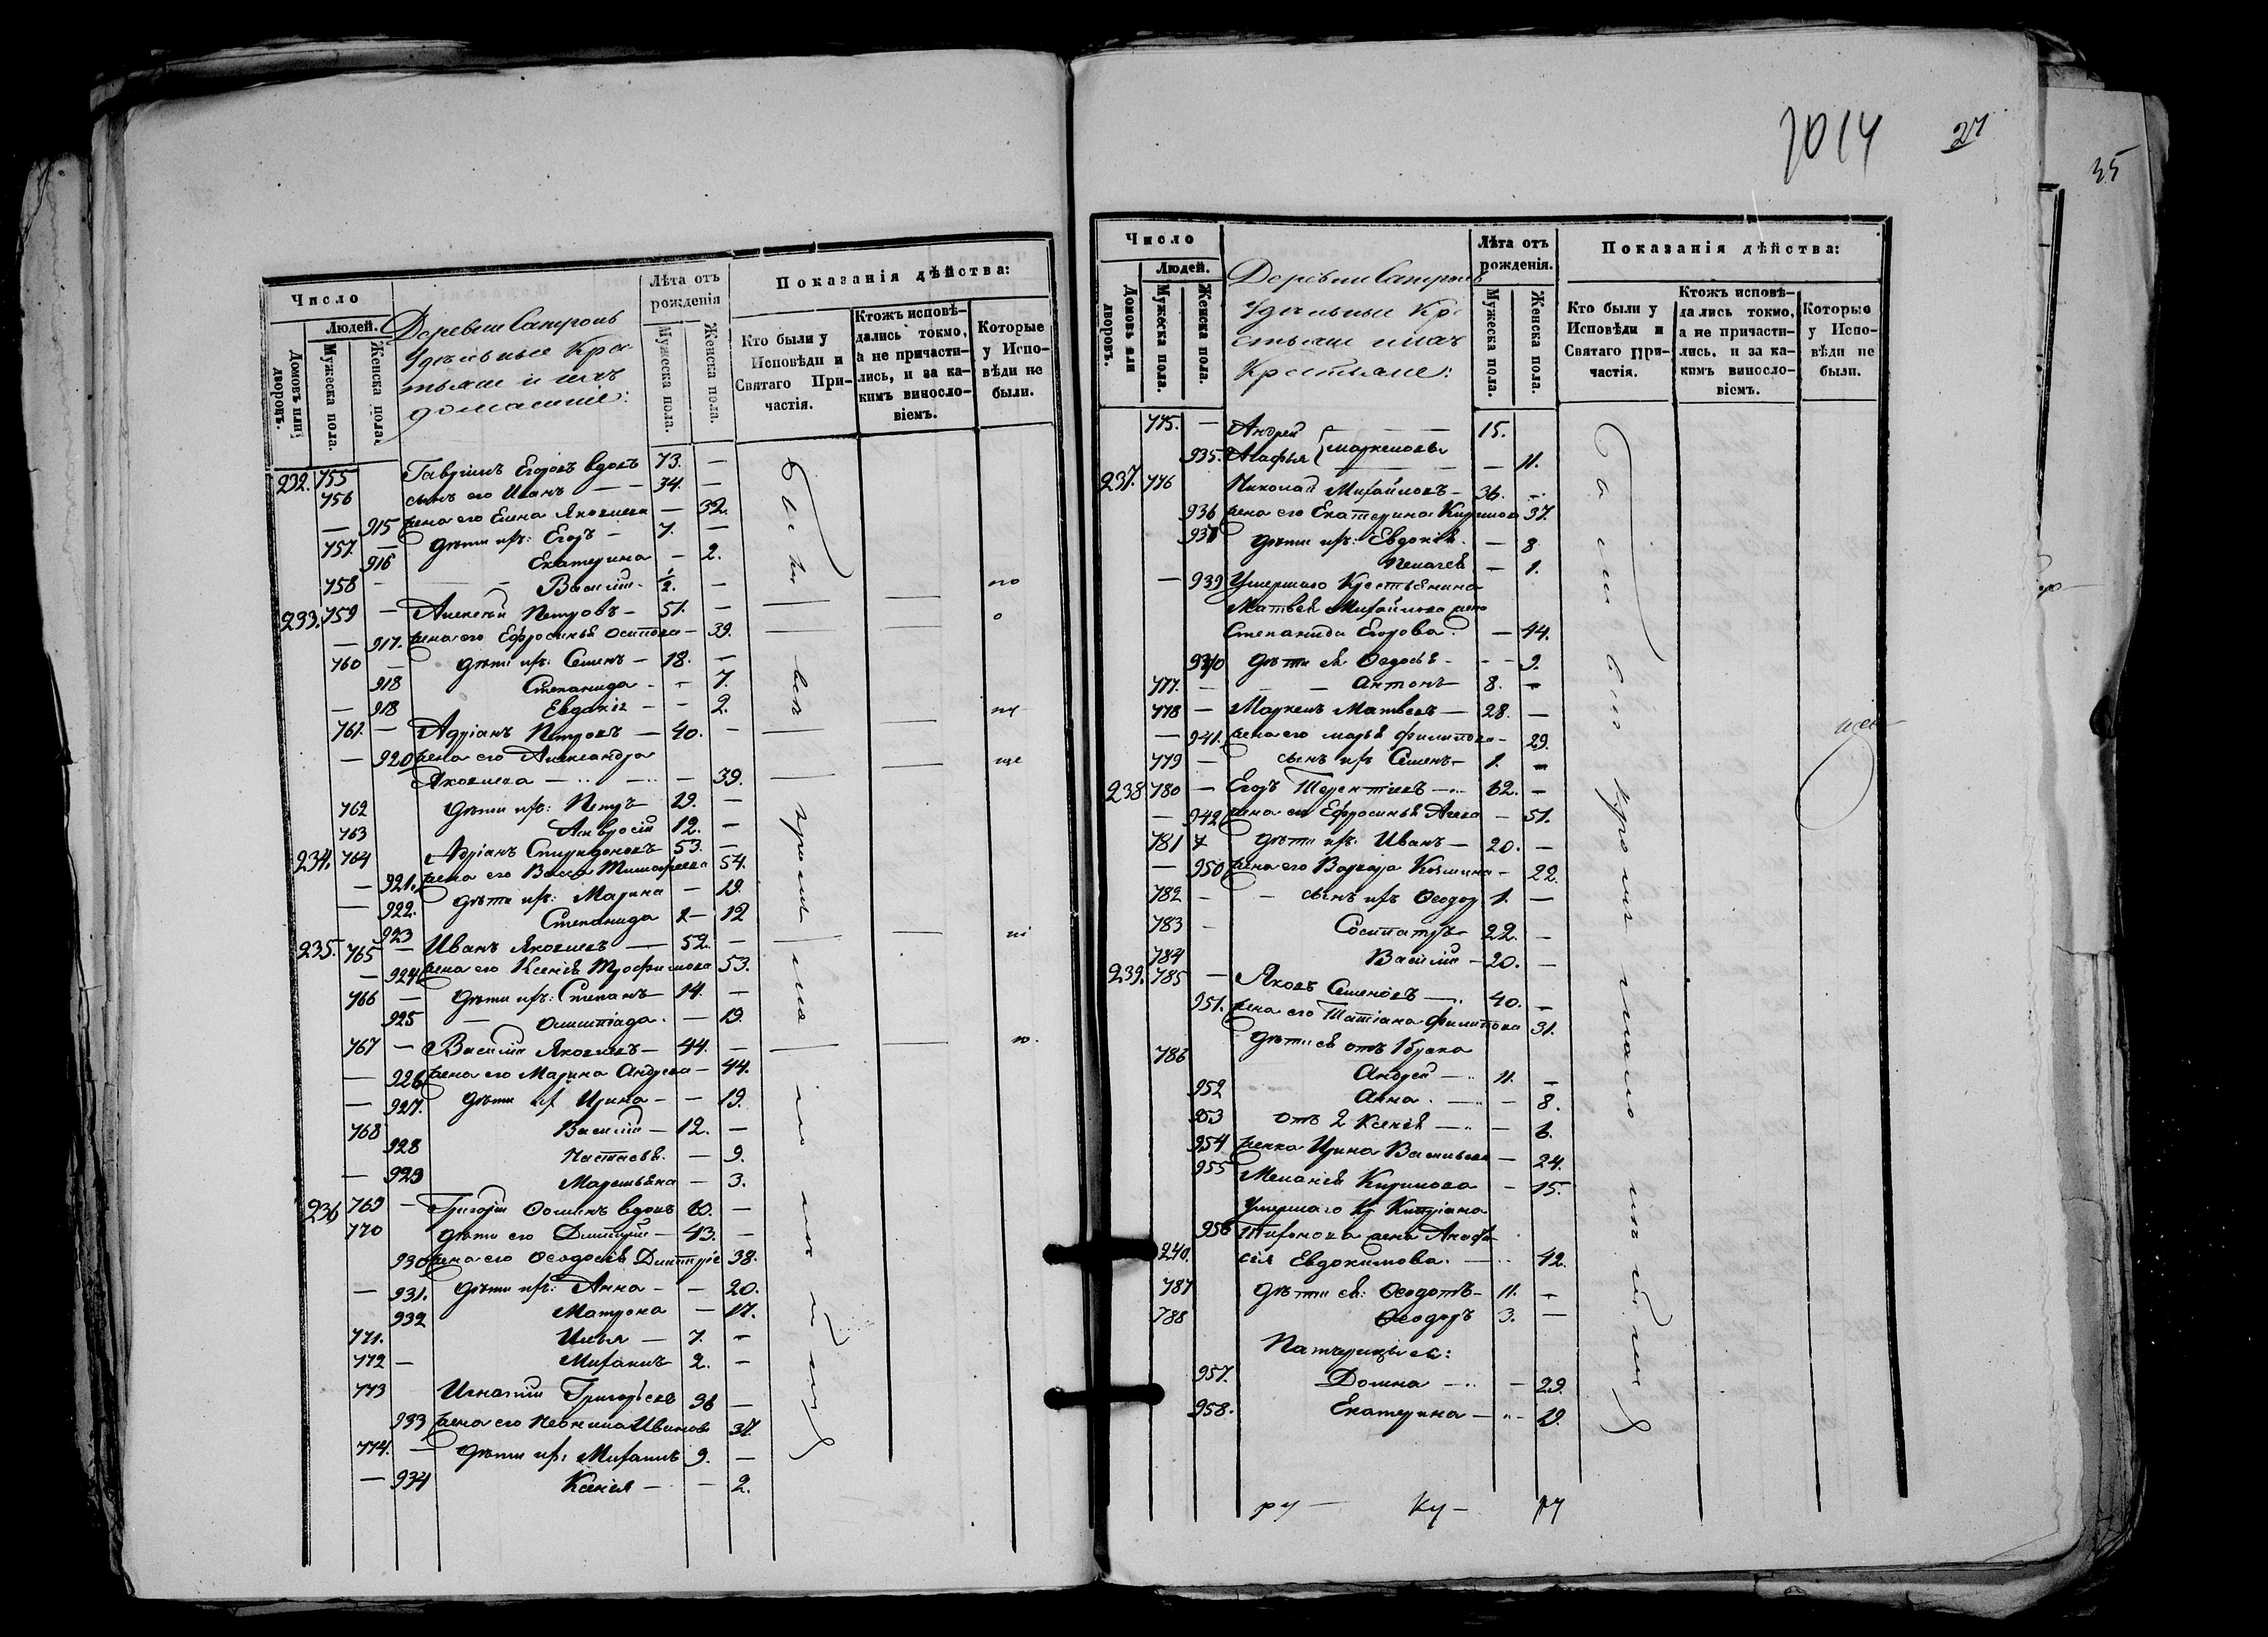 Число
Людей.
Домовъ или дворовъ.
Мужеска пола.
Женска пола.
Деревни
Удѣльные Кре-
стьяне и ихъ
домашніе:
Лѣта отъ рожденія
Мужеска пола.
Женска пола.
Показанія дѣйства:
Кто были у Исповѣди и Святаго Причастія.
Ктожъ исповѣ-дались токмо, а не причасти-лись, и за ка-кимъ винословіемъ.
Которые у Испо-вѣди не были.
232. 755 Гавріилъ Егоровъ вдовъ 73. —
756 сынъ его Иванъ — 34. —
— 915 жена его Елена Яковлева — 32.
757. — дѣти ихъ: Егоръ — 7. —
916 Екатерина — 2.
758 — Василій — 1/2. —
233. 759 — Алексѣй Петровъ — 51. —
— 917. жена его Ефросинья Осипова — 39.
760 — дѣти ихъ: Семенъ — 18. —
918 Степанида — 7.
— 918 Евдокія — 2.
761. — Адріанъ Петровъ — 40. —
— 920 жена его Александра
Яковлева — 39.
762 дѣти ихъ: Петръ 19. —
763 Амвросій 12. —
234. 764 Адріанъ Спиридоновъ 53. —
— 921. жена его Васса Тимофеева 54.
— 922. дѣти ихъ: Марина — 19.
923 Степанида — 12
235. 765 — Иванъ Яковлевъ — 52. —
— 924 жена его Ксенія Трофимова 53.
766 — дѣти ихъ: Степанъ — 14. —
925 — Олимпіада. — 19.
767 — Василій Яковлевъ — 44. —
— 926 жена его Марина Андреева — 44.
— 927. дѣти ихъ Ирина — 19.
768 Василій — 12. —
928 Настасья. — 9.
— 929 Маремьяна — 3.
236 769 — Григорій Фоминъ вдовъ 60. —
770 дѣти его Димитрій — 43. —
930 жена его Ѳеодосія Дмитріе 38.
— 931. дѣти ихъ: Анна — 20.
932 Матрона — 17.
771. Илья — 7. —
772 — Михаилъ 2. —
773 Игнатій Григорьевъ 36 —
933 жена его Неонила Иванова 37.
774. — дѣти ихъ: Михаилъ 9. —
— 934 Ксенія — 2.
1014
27
35
Число
Людей.
Домовъ или дворовъ.
Мужеска пола.
Женска пола.
Деревни
Удѣльные Кре-
стьяне
Крестьяне:
Лѣта отъ рожденія.
Мужеска пола.
Женска пола.
Показанія дѣйства:
Кто были у Исповѣди и Святаго При-частія.
Ктожъ исповѣ-дались токмо, а не причасти-лись. и за ка-кимъ виносло-віемъ.
Которые у Испо-вѣди не были.
775. — Андрей — 15.
935. Агафья — 11.
237. 776 Николай Михайловъ — 36. —
936 жена его Екатерина Кирилова 37.
937 дѣти ихъ: Евдокія. — 8
Пелагея — 1.
— 939 Умершаго Крестьянина
Матвея Михайлова жена
Степанида Егорова. — 44.
940 дѣти ея Ѳедосья — 9.
777. — Антонъ 8. —
778 — Маркелъ Матвеевъ — 28. —
— 941. жена его Марья Филипова — 29.
779 — сынъ ихъ Семенъ — 1. —
238 780 — Егоръ Терентіевъ — 62. —
— 942 жена его Ефросинья — 51.
781 дѣти ихъ: Иванъ — 20. —
— 950 жена его Варвара Козмина — 22.
782 — сынъ ихъ Ѳеодоръ 1. —
783 — Сосипатръ 22. —
784 Василій — 20. —
239. 785 — Яковъ Семеновъ — 40. —
951. жена его Татіана Филипова 31.
дѣти ея отъ 1 брака
786 Андрей — 11. —
952 Анна. — 8.
953 отъ 2 Ксенія — 6.
954 Ирина Васильева — 24.
955 Меланія Кирилова — 15.
Умершаго Кр Кипріана
956 Тихонова жена Анфи-
240. сія Евдокимова. — 42.
787 дѣти ея: Ѳеодотъ — 11. —
788 Ѳеодоръ 3. —
Патчерицы ея:
957. Домна — 29.
958. Екатерина — 19.